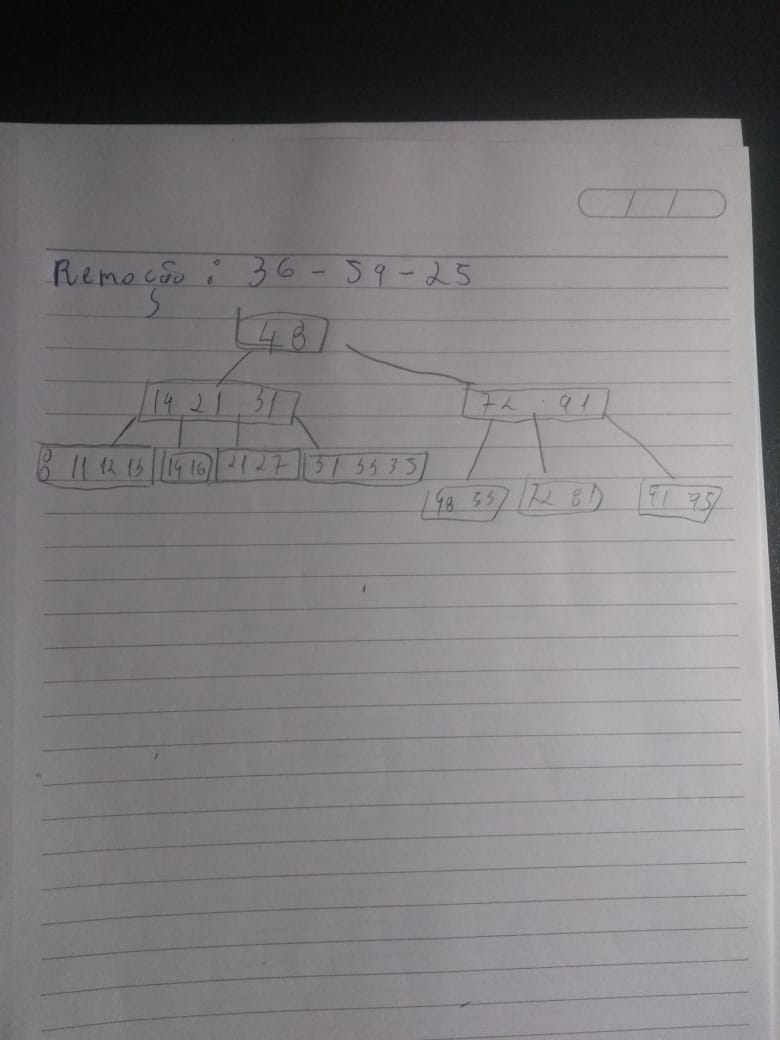 Remoção: 36 - 59 - 25
48
19 21 31 72 91
8 11 12 13 19 16 21 27 31 33 35
48 55 72 81 91 95